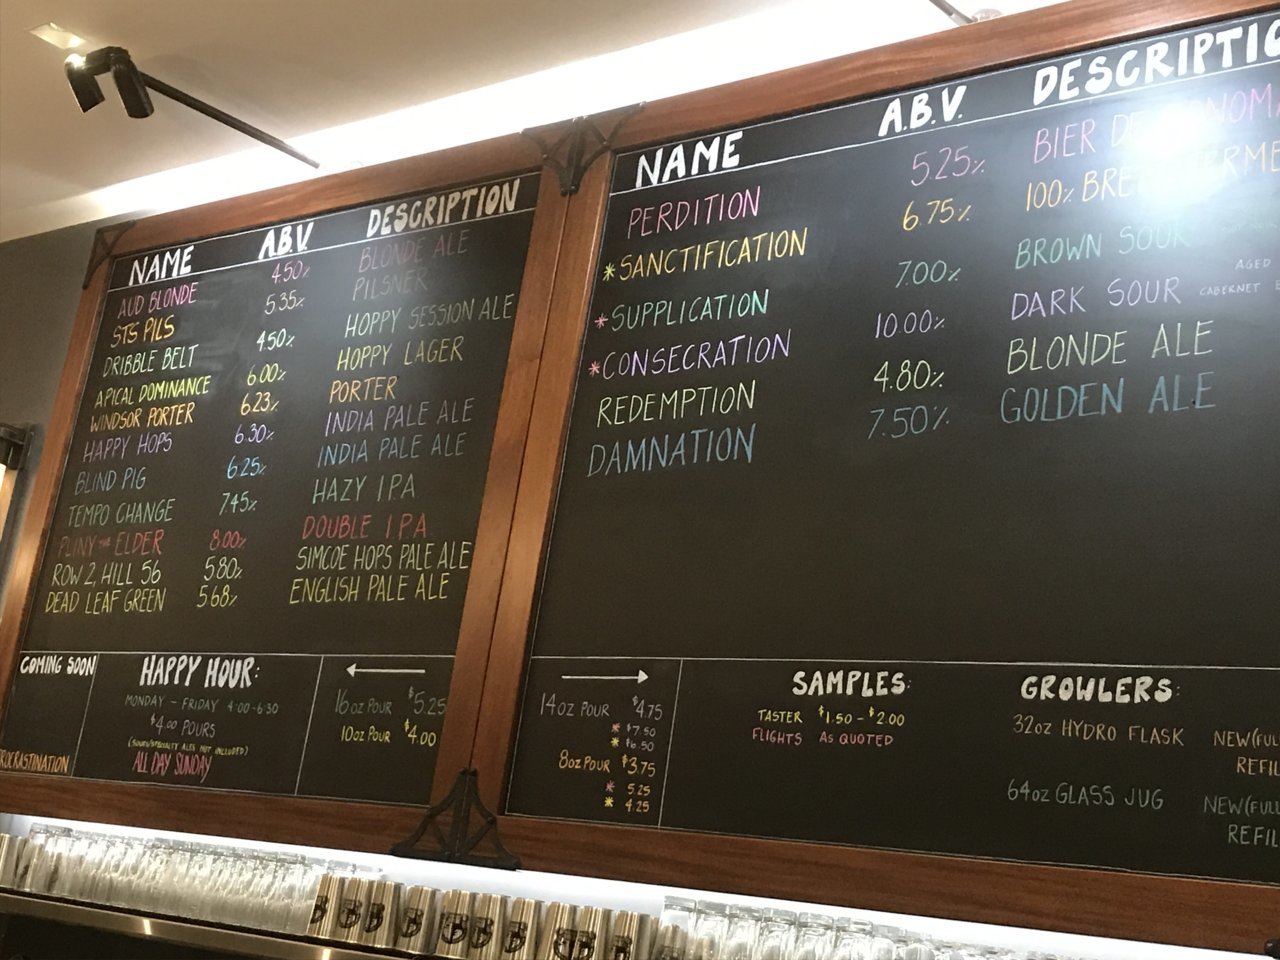 NAME A.B.V. DESCRIPTION
AUD BLONDE 4.50% BLONDE ALE
STS PILS 5.35% PILSNER
DRIBBLE BELT 4.50% HOPPY SESSION ALE
APICAL DOMINANCE 6.00% HOPPY LAGER
WINDSOR PORTER 6.23% PORTER
HAPPY HOPS 6.30% INDIA PALE ALE
BLIND PIG 6.25% INDIA PALE ALE
TEMPO CHANGE 7.45% HAZY IPA
PLINY THE ELDER 8.00% DOUBLE IPA
ROW 2, HILL 56 5.80% SIMCOE HOPS PALE ALE
DEAD LEAF GREEN 5.68% ENGLISH PALE ALE
COMING SOON
ROCRASTINATION
HAPPY HOUR:
MONDAY - FRIDAY 4:00-6:30
$4.00 POURS
(SOURS/SPECIALTY ALES NOT INCLUDED)
ALL DAY SUNDAY
16oz POUR $5.25
10oz POUR $4.00
NAME A.B.V. DESCRIPTIO
PERDITION 5.25% BIER DE
*SANCTIFICATION 6.75% 100% BRE
*SUPPLICATION 7.00% BROWN SOUR
AGED
*CONSECRATION 10.00% DARK SOUR CABERNET
REDEMPTION 4.80% BLONDE ALE
DAMNATION 7.50% GOLDEN ALE
14oz POUR $4.75
* $7.50
* $6.50
8oz POUR $3.75
* 5.25
* 4.25
SAMPLES:
TASTER $1.50 - $2.00
FLIGHTS AS QUOTED
GROWLERS:
32oz HYDRO FLASK NEW(FUL
REFIL
64oz GLASS JUG NEW(FUL
REFIL